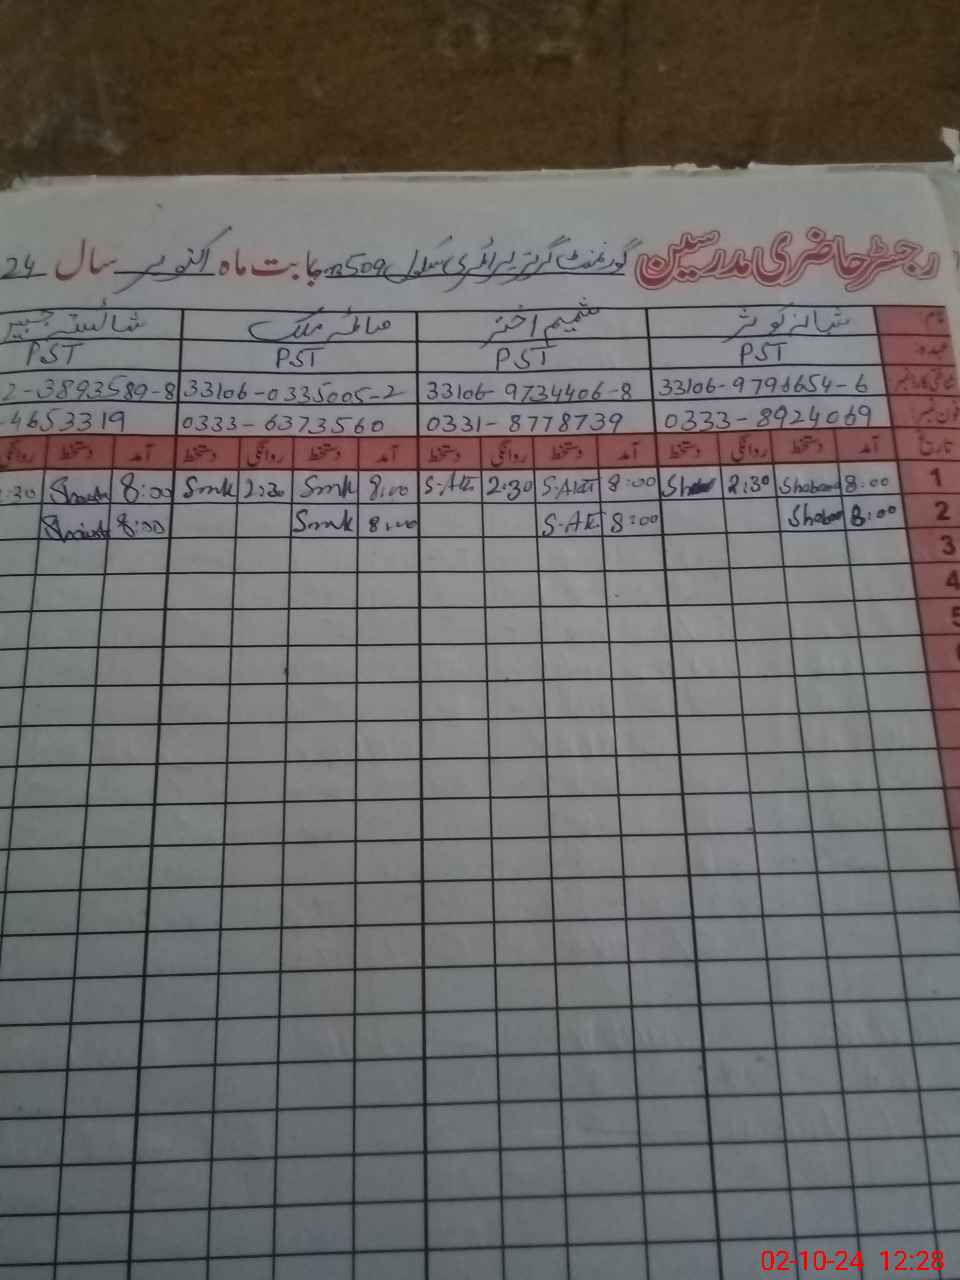 رجسٹر حاضری مدرسین گورنمنٹ گرلز پرائمری سکول 509 بابت ماہ اکتوبر سال 24
نام شبانہ کوثر شمیم اختر صائمہ ملک شائستہ جبیں
عہدہ PST PST PST PST
33106-9798654-6 33106-9734406-8 33106-0335005-2 2-3893589-8
فون نمبر 0333-8924069 0331-8778739 0333-6373560 -4653319
تاریخ آمد دستخط روانگی دستخط آمد دستخط روانگی دستخط آمد دستخط روانگی دستخط آمد دستخط روانگی
1 8:00 Shaban 2:30 8:00 S-Akt 2:30 S-Akt 8:00 Smk 2:30 Smk 8:00 :30
2 8:00 Shaban 8:00 S-Akt 8:00 Smk 8:00
3
4
5
02-10-24 12:28